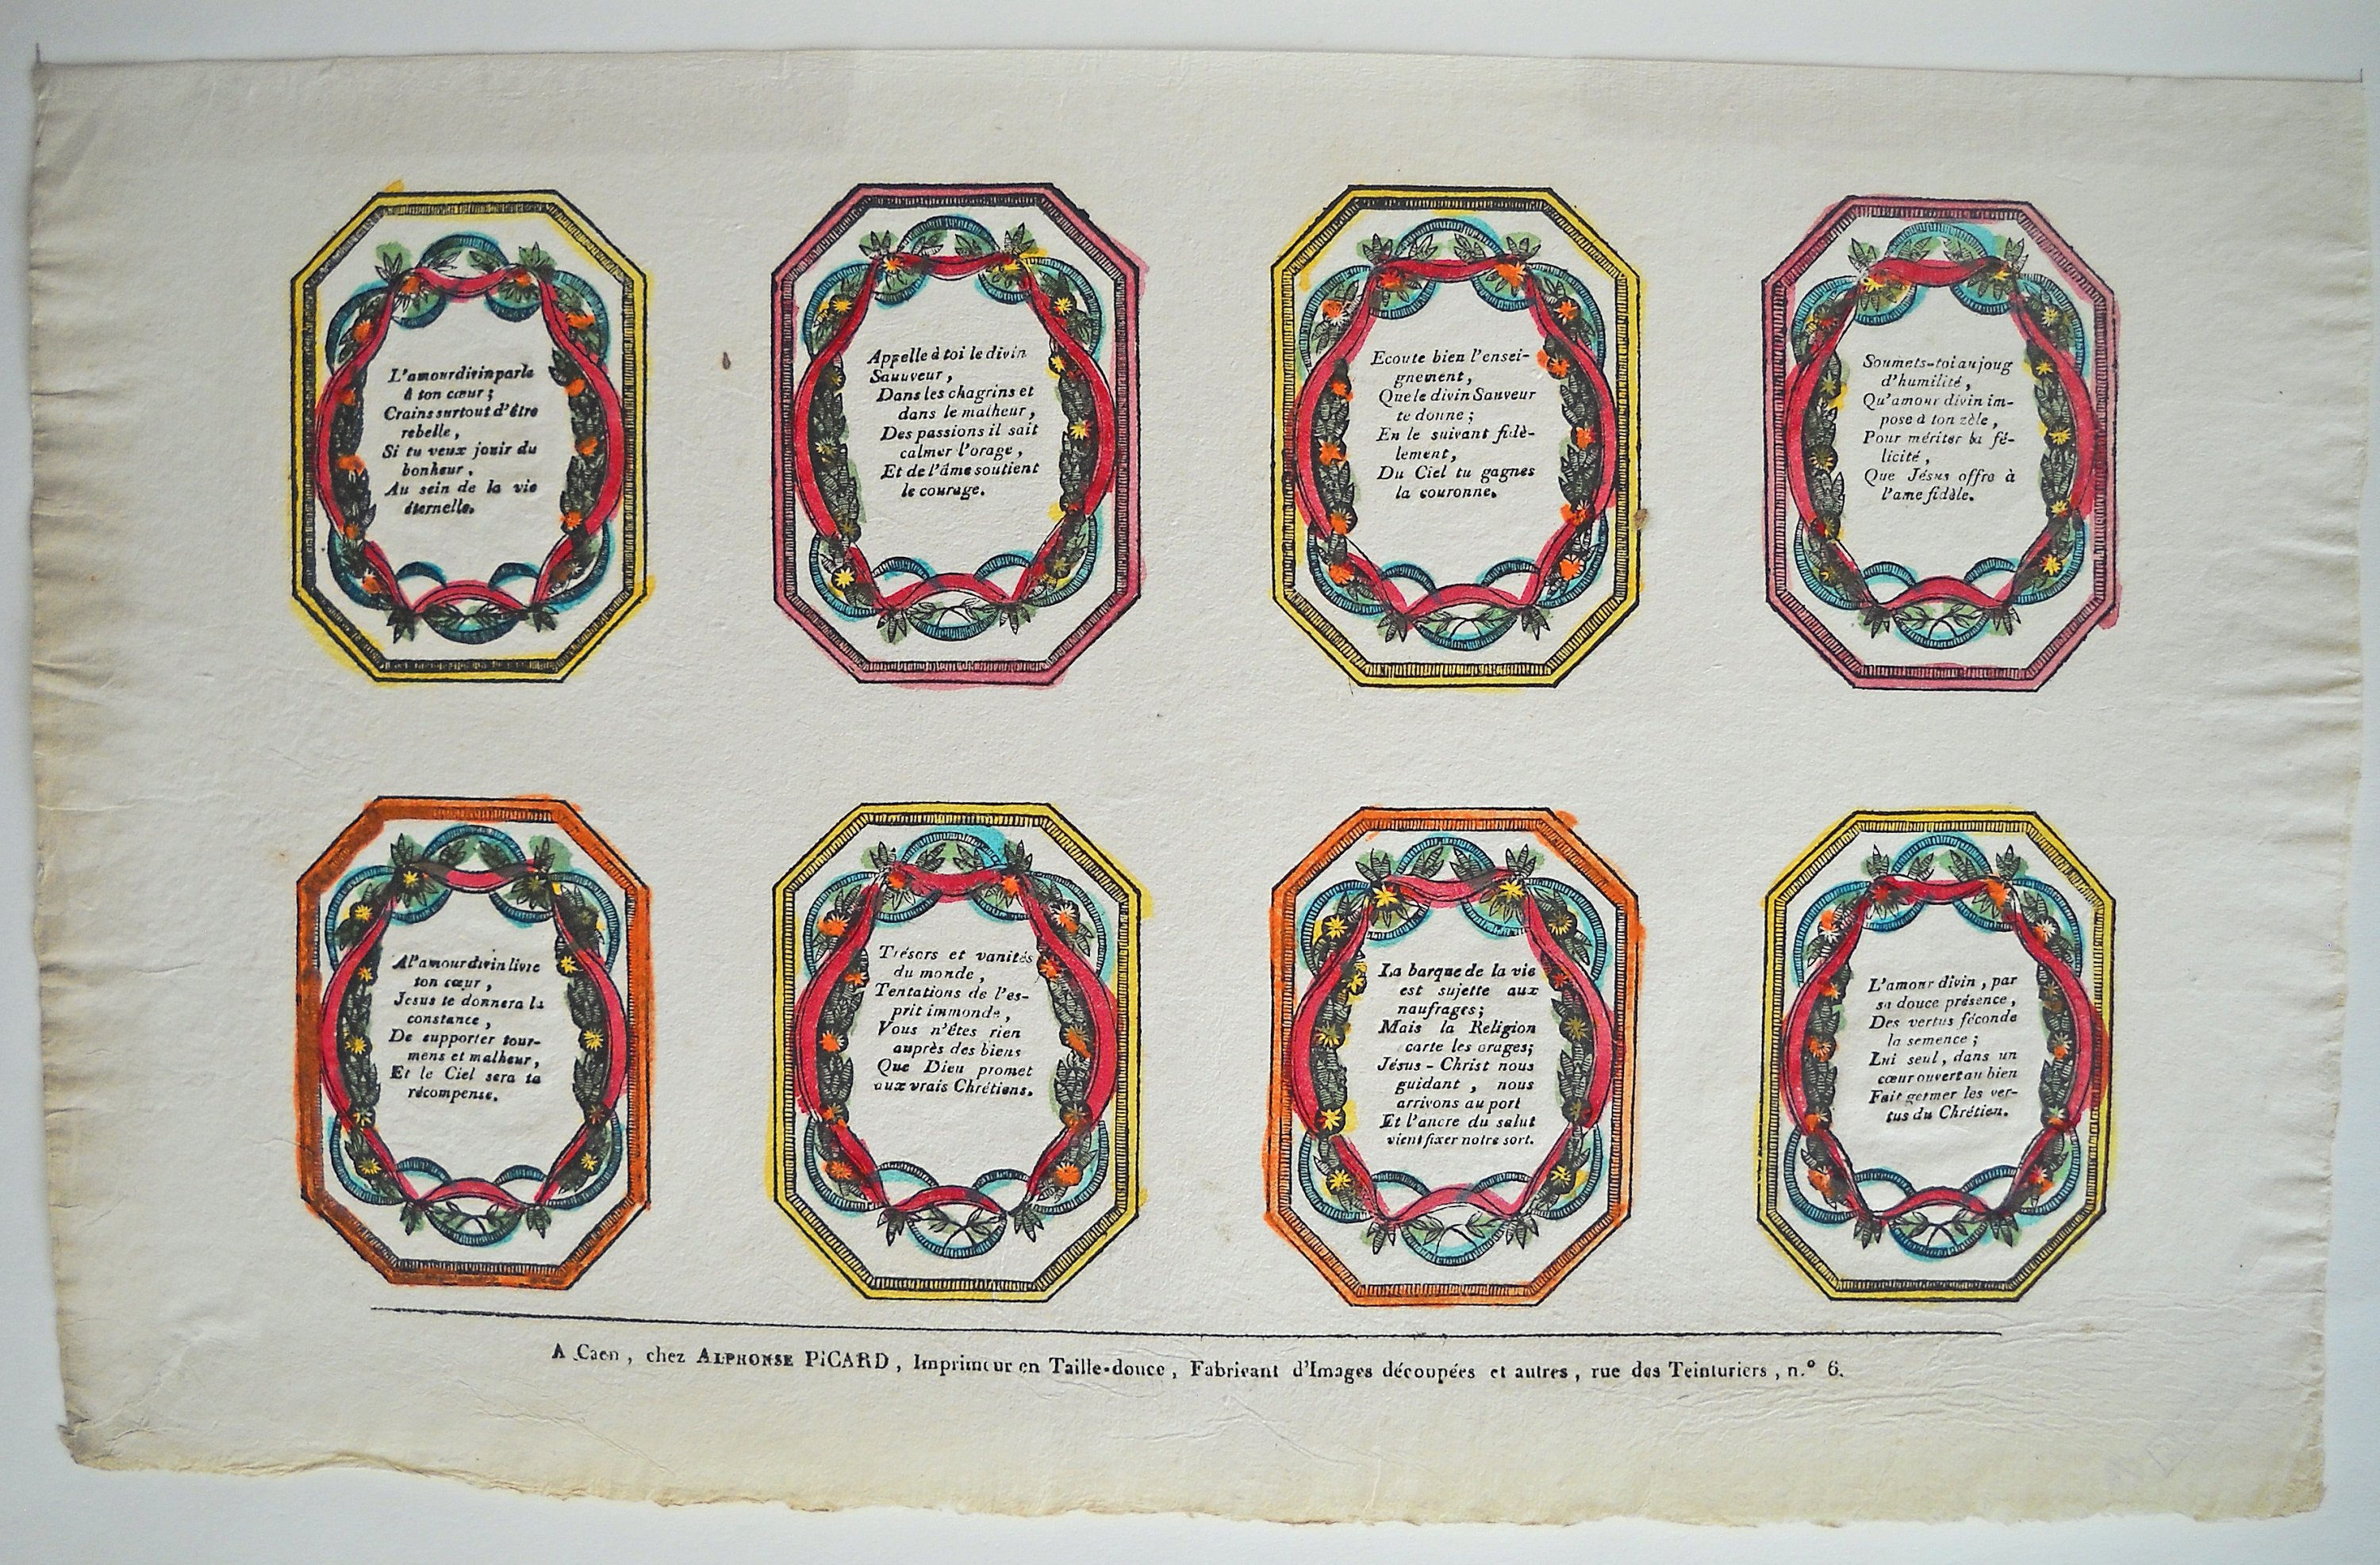 L'amour divin parle
à ton cœur;
Crains surtout d'être
rebelle,
Si tu veux jouir du
bonheur,
Au sein de la vie
éternelle.
Appelle à toi le divin
Sauuveur,
Dans les chagrins et
dans le malheur,
Des passions il sait
calmer l'orage,
Et de l'âme soutient
le courage.
Ecoute bien l'ensei-
gnement,
Que le divin Sauveur
te donne;
En le suivant fidè-
lement,
Du Ciel tu gagnes
la couronne.
Soumets-toi au joug
d'humilité,
Qu'amour divin im-
pose à ton zèle,
Pour mériter la fé-
licité,
Que Jésus offre à
l'ame fidèle.
A l'amour divin livre
ton cœur,
Jesus te donnera la
constance,
De supporter tour-
mens et malheur,
Et le Ciel sera ta
récompense.
Trésors et vanités
du monde,
Tentations de l'es-
prit immonde,
Vous n'êtes rien
auprès des biens
Que Dieu promet
aux vrais Chrétiens.
La barque de la vie
est sujette aux
naufrages;
Mais la Religion
carte les orages;
Jésus-Christ nous
guidant, nous
arrivons au port
Et l'ancre du salut
vient fixer notre sort.
L'amour divin, par
sa douce présence,
Des vertus féconde
la semence;
Lui seul, dans un
cœur ouvert au bien
Fait germer les ver-
tus du Chrétien.
A Caen, chez ALPHONSE PICARD, Imprimeur en Taille-douce, Fabricant d'Images découpées et autres, rue des Teinturiers, n.º 6.